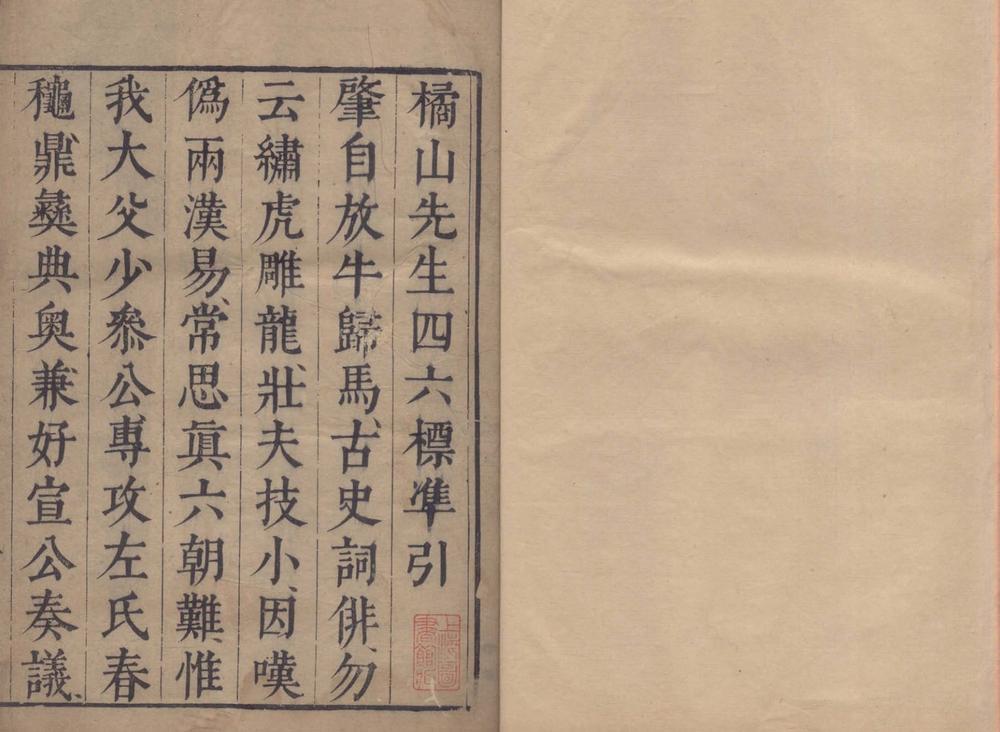 橘山先生四六標準引
肇自放牛歸馬、古史詞俳、勿
云繡虎雕龍、壯夫技小、因嘆
僞兩漢易、常思眞六朝難、惟
我大父少叅公、專攻左氏春
龝、鼎彝典奥、兼好宣公奏議、